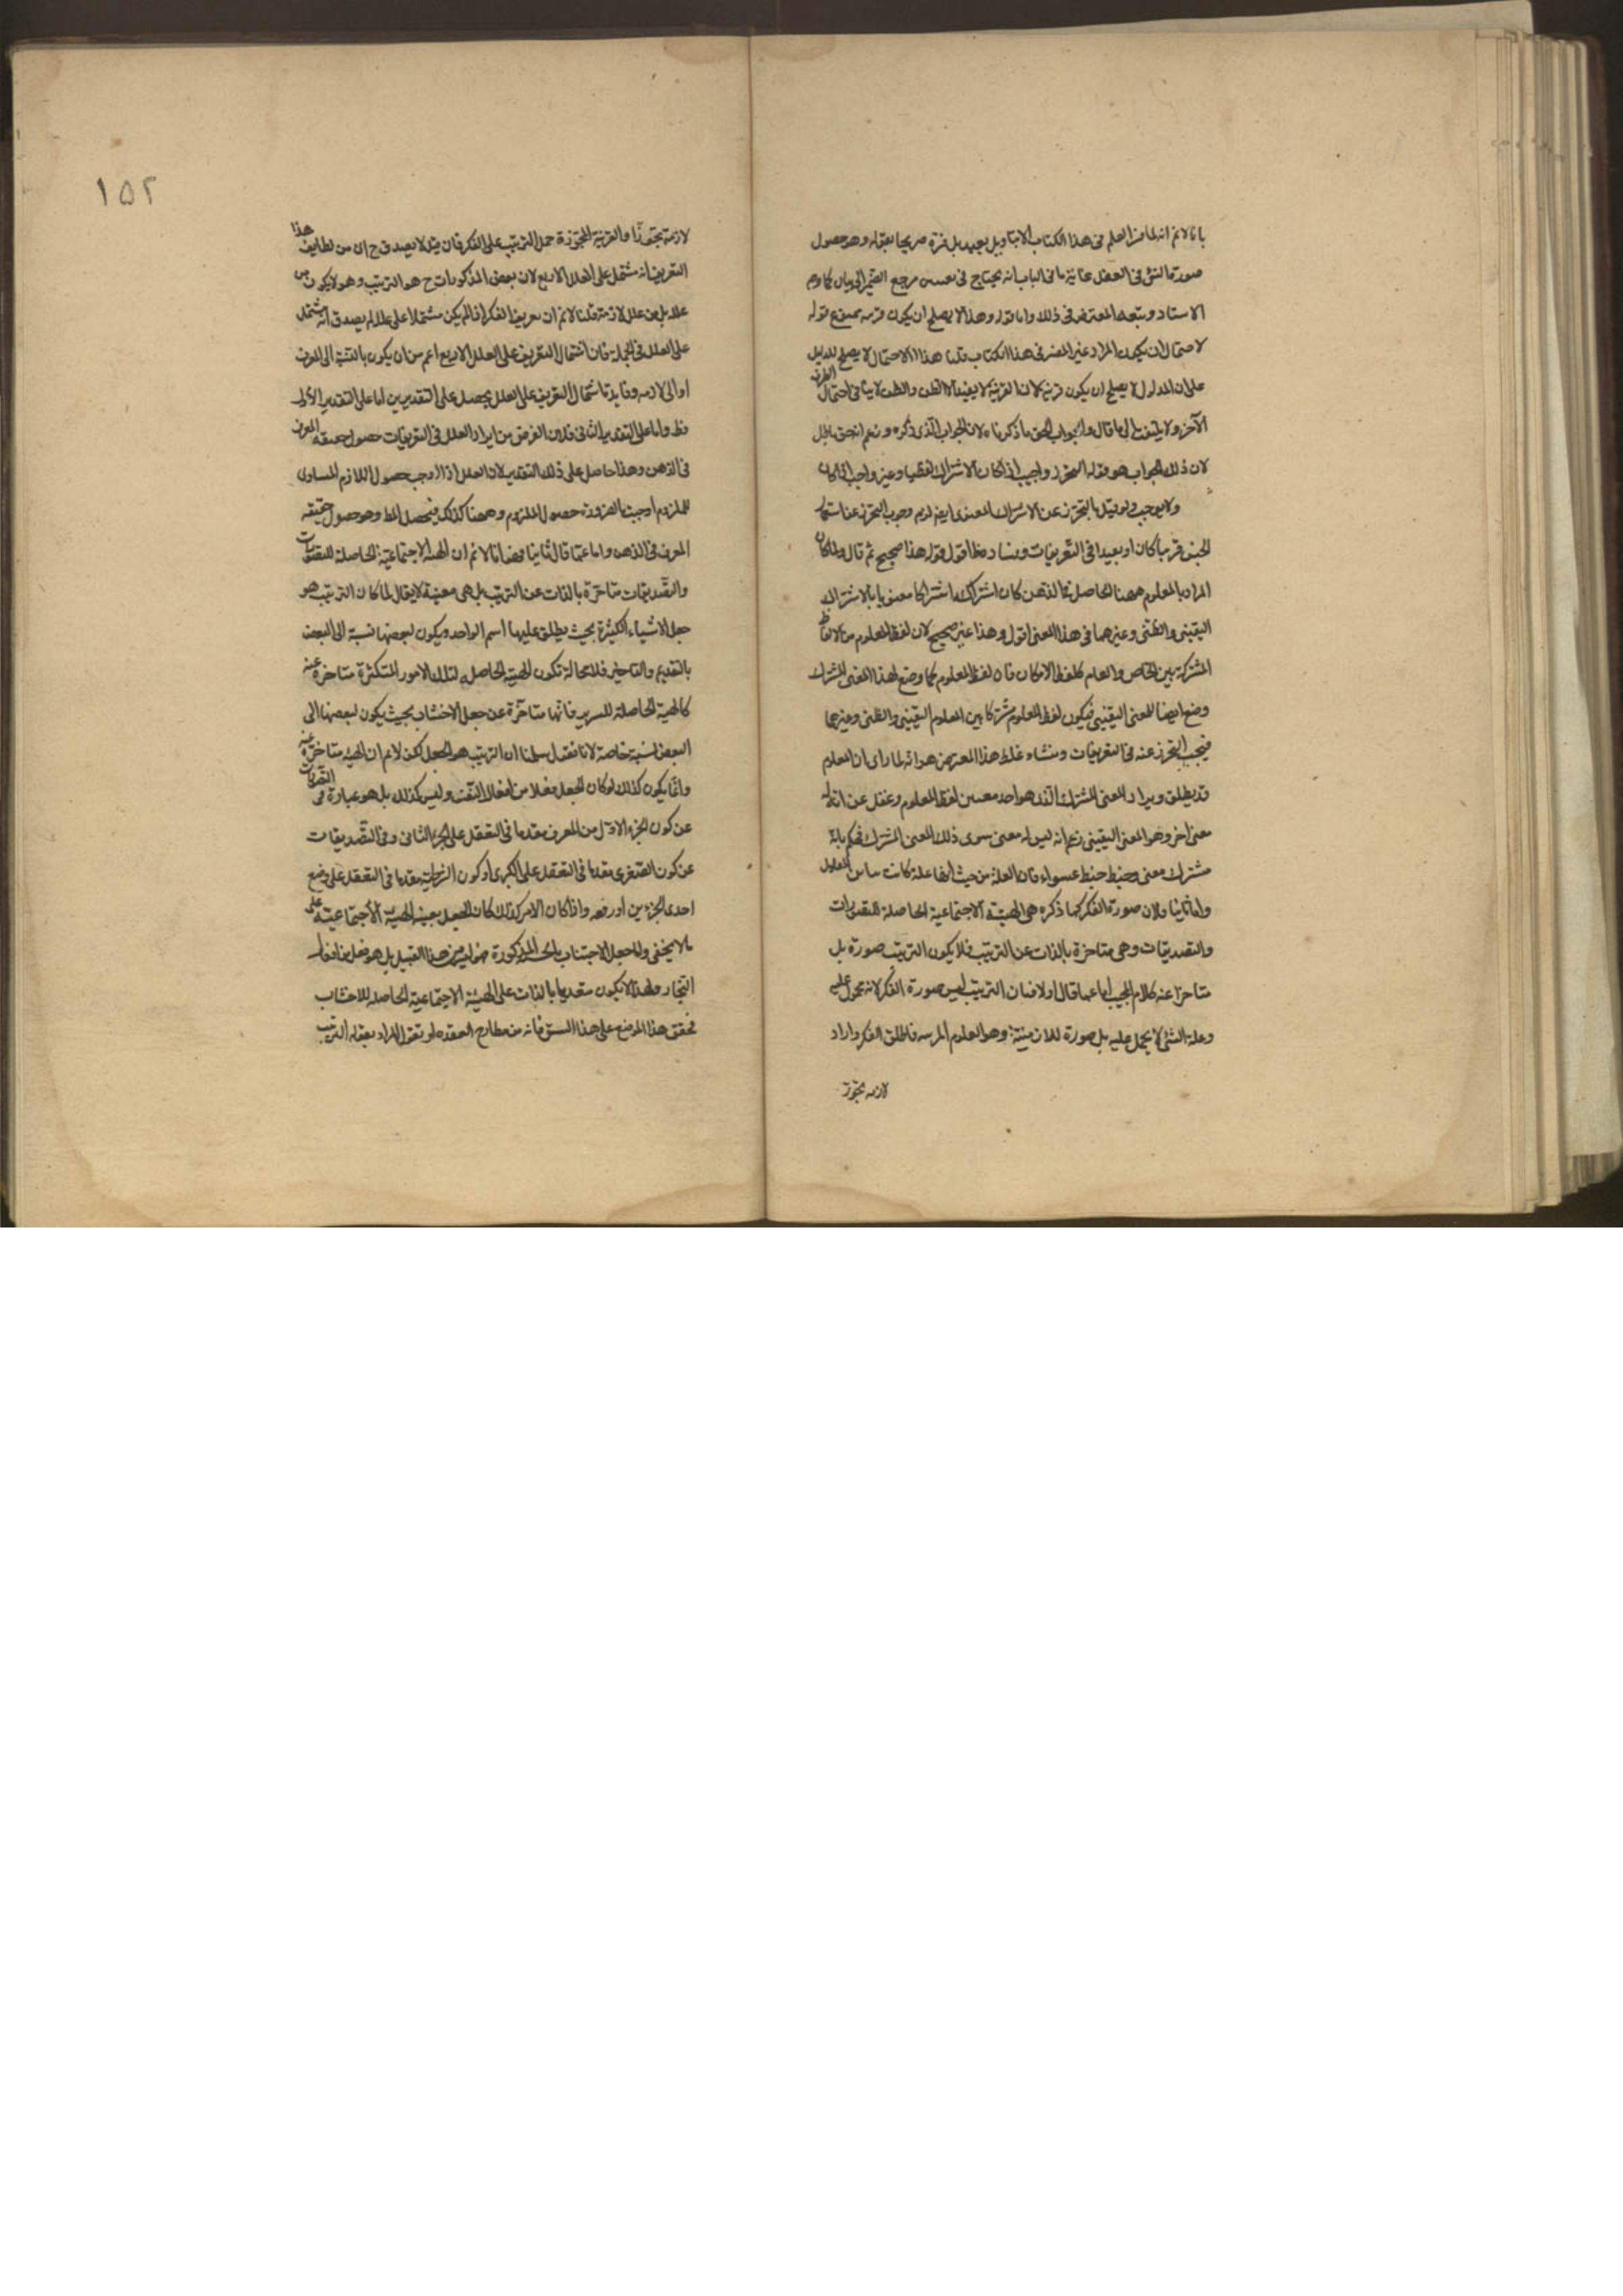 بانا لا نم انه لما فسر العلم فى هذا الكتاب الا بتاويل بعيد بل فسره صريحا بقوله وهو حصول
صورة الشئ فى العقل غاية ما فى الباب انه يحتاج فى مرجع الضمير الى بيان كما
الاستاد وتبعه المعترض فى ذلك واما قوله وهذا لا يصلح ان يكون قوله
لاحتمال ان يكون المراد غير المفسر فى هذا الكتاب قلنا هذا الاحتمال لا يصلح للدليل
على ان المدلول لا يصلح ان يكون قرينة لان القرينة لا يفيد الا الظن والظن لا ينافى احتمال الطرف
الآخر ولا يلتفت الى ما قال والجواب الحق ما ذكرناه لان الجواب الذى ذكره وزعم انه حق باطل
لان ذلك الجواب هو قوله التحرز واجب اذا كان الاشتراك لفظيا وغير واجب اذا كان
ولا يوجب ولو قيل بالتحرز عن الاشتراك المعنوى ايضا لزم وجوب التحرز عن استعمال
الجنس قريبا كان او بعيدا فى التعريفات وفساده ظ اقول قوله هذا صحيح ثم قال ولما كان
المراد بالمعلوم ههنا الحاصل فى الذهن كان اشتراكه اشتراكا معنويا بالاشتراك
اليقينى والظنى وغيرهما فى هذا المعنى اقول وهذا غير صحيح لان لفظ المعلوم من الالفاظ
المشتركة بين الخاص والعام كلفظ الامكان فان لفظ المعلوم كما وضع لهذا المعنى المشترك
وضع ايضا للمعنى اليقينى فيكون لفظ المعلوم مشتركا بين المعلوم اليقينى والظنى وغيرهما
فيجب التحرز عنه فى التعريفات ومنشاء غلط هذا المعترض هو انه لما راى ان المعلوم
قد يطلق ويراد المعنى المشترك الذى هو احد معنيى لفظ المعلوم وغفل عن ان له
معنى اخر وهو المعنى اليقينى زعم انه ليس له معنى سوى ذلك المعنى المشترك فحكم بانه
مشترك معنى وخبط خبط عشواء فان العلة من حيث انها علة كانت المعلول
واما ثانيا فلان صورة الفكر كما ذكره هى الهيئة الاجتماعية الحاصلة للتصورات
والتصديقات وهى متاخرة بالذات عن الترتيب فلا يكون الترتيب صورة بل
متاخرا عنه كلام المجيب اما عما قال اولا فبان الترتيب ليس صورة الفكر لانه محمول عليه
وعلة الشئ لا يحمل عليه بل صورة للازمه وهو العلوم المرتبه فاطلق الفكر واراد
لازمه تجوز
١٥٢
لازمه تجوزا والقرينة المجوزة حمل الترتيب على الفكر فان قيل لا يصدق ح ان من لطايف هذا
التعريف انه مشتمل على العلل الاربع لان بعض المذكورات ح هو الترتيب وهو لا يكون من
علله بل من علل لازمه قلنا لا نم ان تعريف الفكر اذا لم يكن مشتملا على علله لم يصدق انه مشتمل
على العلل فى الجملة فان اشتمال التعريف على العلل الاربع اعم من ان يكون بالنسبة الى المعرف
او الى لازمه وفايدة اشتمال التعريف على العلل يحصل على التقديرين اما على التقدير الاول
فظ واما على التقدير الثانى فلان الغرض من ايراد العلل فى التعريفات حصول حقيقة المعرف
فى الذهن وهذا حاصل على ذلك التقدير لان العلل اذا اوجب حصول اللازم المساوى
للملزوم اوجبت بالضرورة حصول الملزوم وههنا كذلك فيحصل المط وهو حصول حقيقة
المعرف فى الذهن واما عما قال ثانيا فهو انا لا نم ان الهيئة الاجتماعية الحاصلة للتصورات
والتصديقات متاخرة بالذات عن الترتيب بل هى معينة لا يقال لما كان الترتيب هو
جعل الاشياء الكثيرة بحيث يطلق عليها اسم الواحد ويكون لبعضها نسبة الى البعض
بالتقديم والتاخير فلا محالة تكون الهيئة الحاصلة لتلك الامور المتكثرة متاخرة عنه
كالهيئة الحاصلة للسرير فانها متاخرة عن جعل الاخشاب بحيث يكون لبعضها الى
البعض نسبة خاصة لانا نقول سلمنا ان الترتيب هو الجعل لكن لا نم ان الهيئة متاخرة عنه
وانما يكون كذلك لو كان الجعل فعلا من افعال النفس وليس كذلك بل هو عبارة فى التصورات
عن كون الجزء الاول من المعرف مقدما فى التعقل على الجزء الثانى وفى التصديقات
عن كون الصغرى مقدما فى التعقل على الكبرى او كون الشرطية مقدما فى التعقل على وضع
احدى الجزءين او رفعه واذا كان الامر كذلك كان الجعل بعينه الهيئة الاجتماعية على
ما لا يخفى واما جعل الاخشاب بالحالة المذكورة فليس من هذا القبيل بل هو فعل من افعال
النجار ولهذا لا يكون متقدما بالذات على الهيئة الاجتماعية الحاصلة للاخشاب
فحقق هذا الموضع على هذا النسق فانه من مطارح او تقول المراد بقوله الترتيب